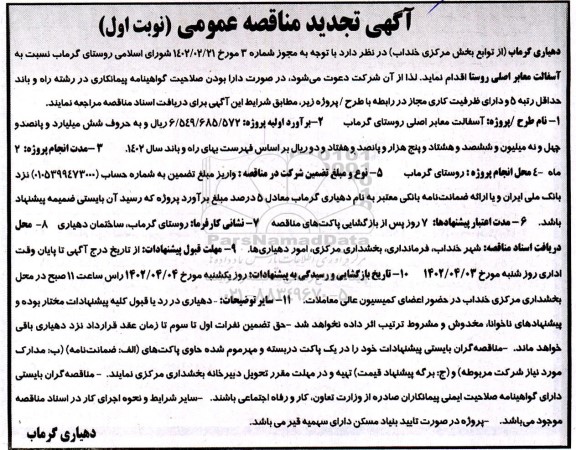 آگهی تجدید مناقصه عمومی (نوبت اول)
دهیاری گرماب (از توابع بخش مرکزی خنداب) در نظر دارد با توجه به مجوز شماره ۳ مورخ ۱۴۰۲/۰۲/۲۱ شورای اسلامی روستای گرماب نسبت به
آسفالت معابر اصلی روستا اقدام نماید. لذا از آن شرکت دعوت می‌شود، در صورت دارا بودن صلاحیت گواهینامه پیمانکاری در رشته راه و باند
حداقل رتبه ۵ و دارای ظرفیت کاری مجاز در رابطه با طرح / پروژه زیر، مطابق شرایط این آگهی برای دریافت اسناد مناقصه مراجعه نمایند.
۱- نام طرح /پروژه: آسفالت معابر اصلی روستای گرماب ۲- برآورد اولیه پروژه: ۶/۵۴۹/۶۸۵/۵۷۲ ریال و به حروف شش میلیارد و پانصدو
چهل و نه میلیون و ششصد و هشتاد و پنج هزار و پانصد و هفتاد و دو ریال بر اساس فهرست بهای راه و باند سال ۱۴۰۲. ۳- مدت انجام پروژه: ۲
ماه ۴- محل انجام پروژه: روستای گرماب ۵- نوع و مبلغ تضمین شرکت در مناقصه: واریز مبلغ تضمین به شماره حساب (۰۱۰۵۳۹۹۴۷۳۰۰۰) نزد
بانک ملی ایران و یا ارائه ضمانت‌نامه بانکی معتبر به نام دهیاری گرماب معادل ۵ درصد مبلغ برآورد پروژه که رسید آن بایستی ضمیمه پیشنهاد
باشد. ۶- مدت اعتبار پیشنهادها: ۷ روز پس از بازگشایی پاکت‌های مناقصه ۷- نشانی کارفرما: روستای گرماب، ساختمان دهیاری ۸- محل
دریافت اسناد مناقصه: شهر خنداب، فرمانداری، بخشداری مرکزی، امور دهیاری‌ها. ۹- مهلت قبول پیشنهادات: از تاریخ درج آگهی تا پایان وقت
اداری روز شنبه مورخ ۱۴۰۲/۰۴/۰۳ ۱۰- تاریخ بازگشایی و رسیدگی به پیشنهادات: روز یکشنبه مورخ ۱۴۰۲/۰۴/۰۴ راس ساعت ۱۱ صبح در محل
بخشداری مرکزی خنداب در حضور اعضای کمیسیون عالی معاملات. ۱۱- سایر توضیحات: - دهیاری در رد یا قبول کلیه پیشنهادات مختار بوده و
پیشنهادهای ناخوانا، مخدوش و مشروط ترتیب اثر داده نخواهد شد -حق تضمین نفرات اول تا سوم تا زمان عقد قرارداد نزد دهیاری باقی
خواهد ماند. -مناقصه‌گران بایستی پیشنهادات خود را در یک پاکت دربسته و مهرموم شده حاوی پاکت‌های (الف: ضمانت‌نامه) (ب: مدارک
مورد نیاز شرکت مربوطه) و (ج: برگه پیشنهاد قیمت) تهیه و در مهلت مقرر تحویل دبیرخانه بخشداری مرکزی نمایند. - مناقصه‌گران بایستی
دارای گواهینامه صلاحیت ایمنی پیمانکاران صادره از وزارت تعاون، کار و رفاه اجتماعی باشند. -سایر شرایط و نحوه اجرای کار در اسناد مناقصه
موجود می‌باشد. -پروژه در صورت تایید بنیاد مسکن دارای سهمیه قیر می باشد.
دهیاری گرماب
ParsNamadData